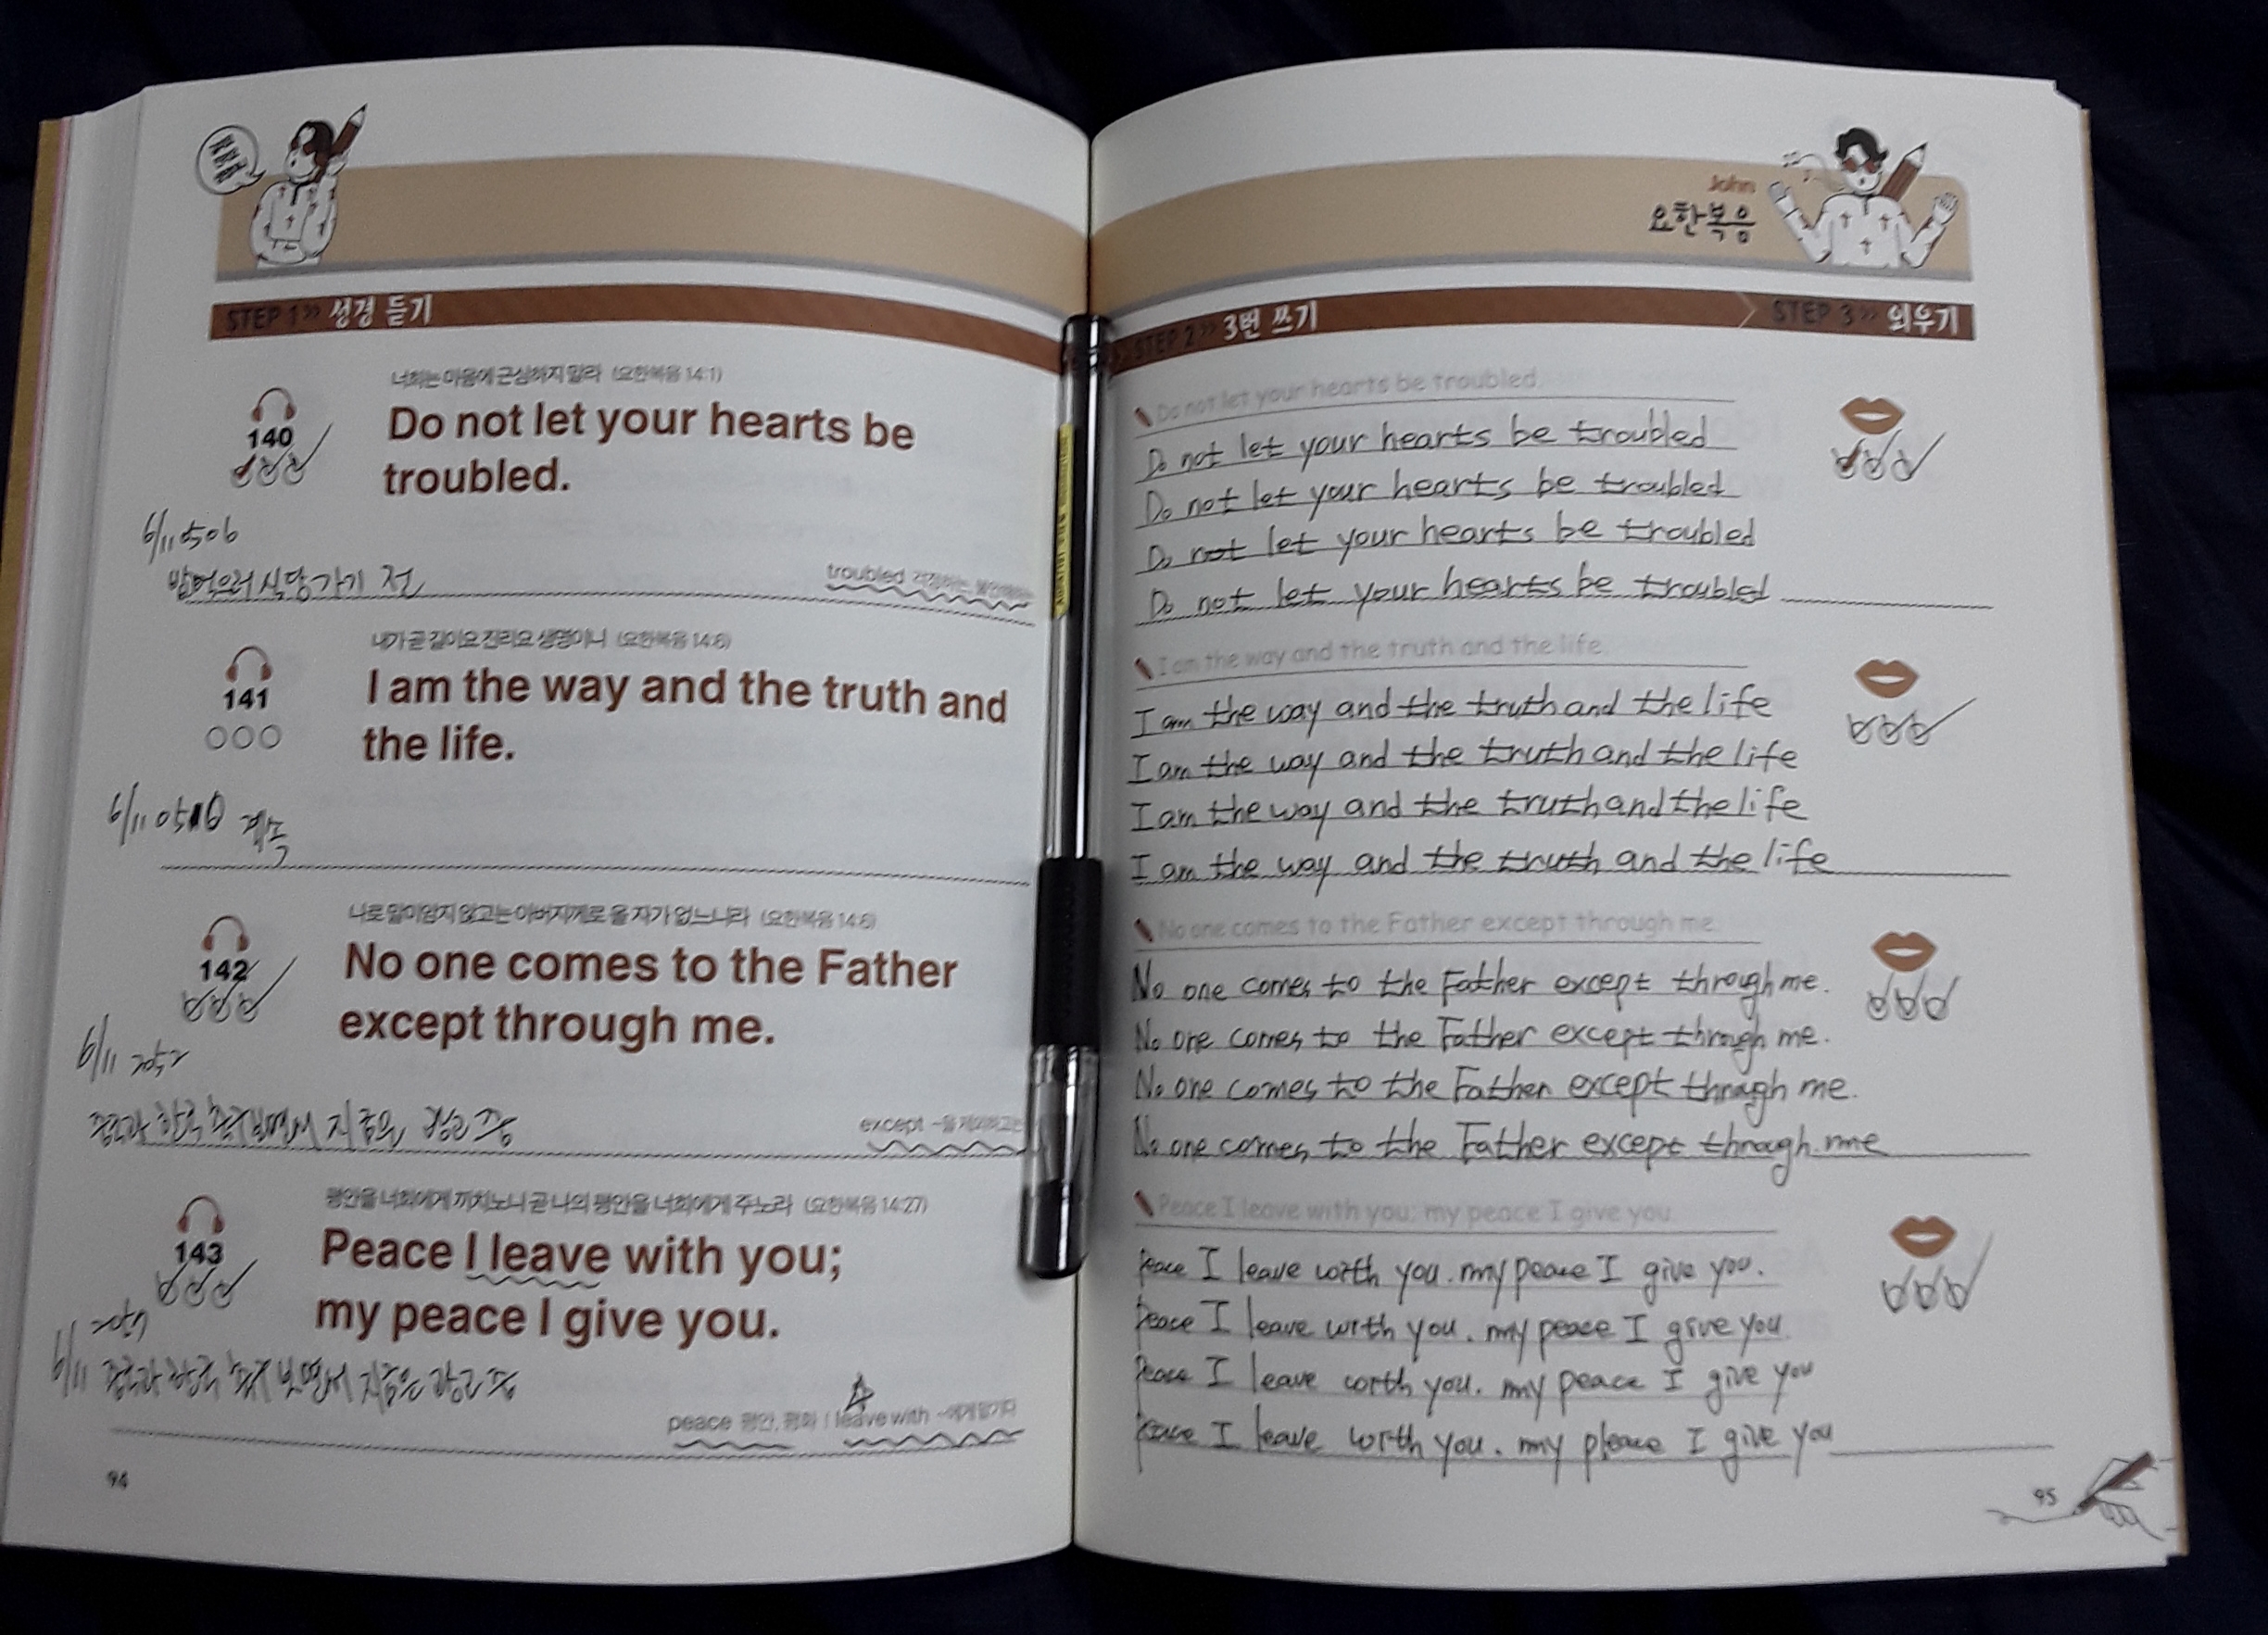 STEP 1 >> 성경 듣기
너희는 마음에 근심하지 말라 (요한복음 14:1)
140
Do not let your hearts be
troubled.
6/11 0506
밥먹으러 식당가기 전
troubled 걱정하는
내가 곧 길이요 진리요 생명이니 (요한복음 14:6)
141
I am the way and the truth and
the life.
6/11
나로 말미암지 않고는 아버지께로 올 자가 없느니라 (요한복음 14:6)
142
No one comes to the Father
except through me.
6/11
except ~을 제외하고는
평안을 너희에게 끼치노니 곧 나의 평안을 너희에게 주노라 (요한복음 14:27)
143
Peace I leave with you;
my peace I give you.
6/11
peace 평안, 평화 | leave with ~에게 맡기다
94
John
요한복음
STEP 2 >> 3번 쓰기
STEP 3 >> 외우기
Do not let your hearts be troubled.
Do not let your hearts be troubled
Do not let your hearts be troubled
Do not let your hearts be troubled
Do not let your hearts be troubled
I am the way and the truth and the life.
I am the way and the truth and the life
I am the way and the truth and the life
I am the way and the truth and the life
I am the way and the truth and the life
No one comes to the Father except through me.
No one comes to the Father except through me.
No one comes to the Father except through me.
No one comes to the Father except through me.
No one comes to the Father except through me
Peace I leave with you; my peace I give you.
peace I leave with you. my peace I give you.
peace I leave with you. my peace I give you
peace I leave with you. my peace I give you
peace I leave with you. my pleace I give you
95